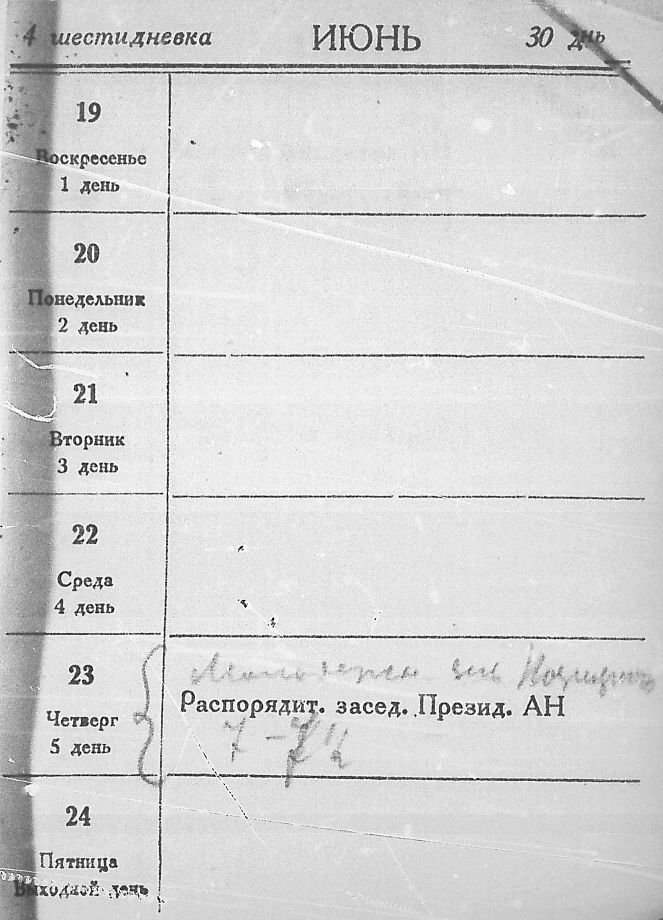 4 шестидневка ИЮНЬ 30 днь
19
Воскресенье
1 день
20
Понедельник
2 день
21
Вторник
3 день
22
Среда
4 день
23
Четверг
5 день
Распорядит. засед. Презид. АН
7 – 7½
24
Пятница
Выходной день